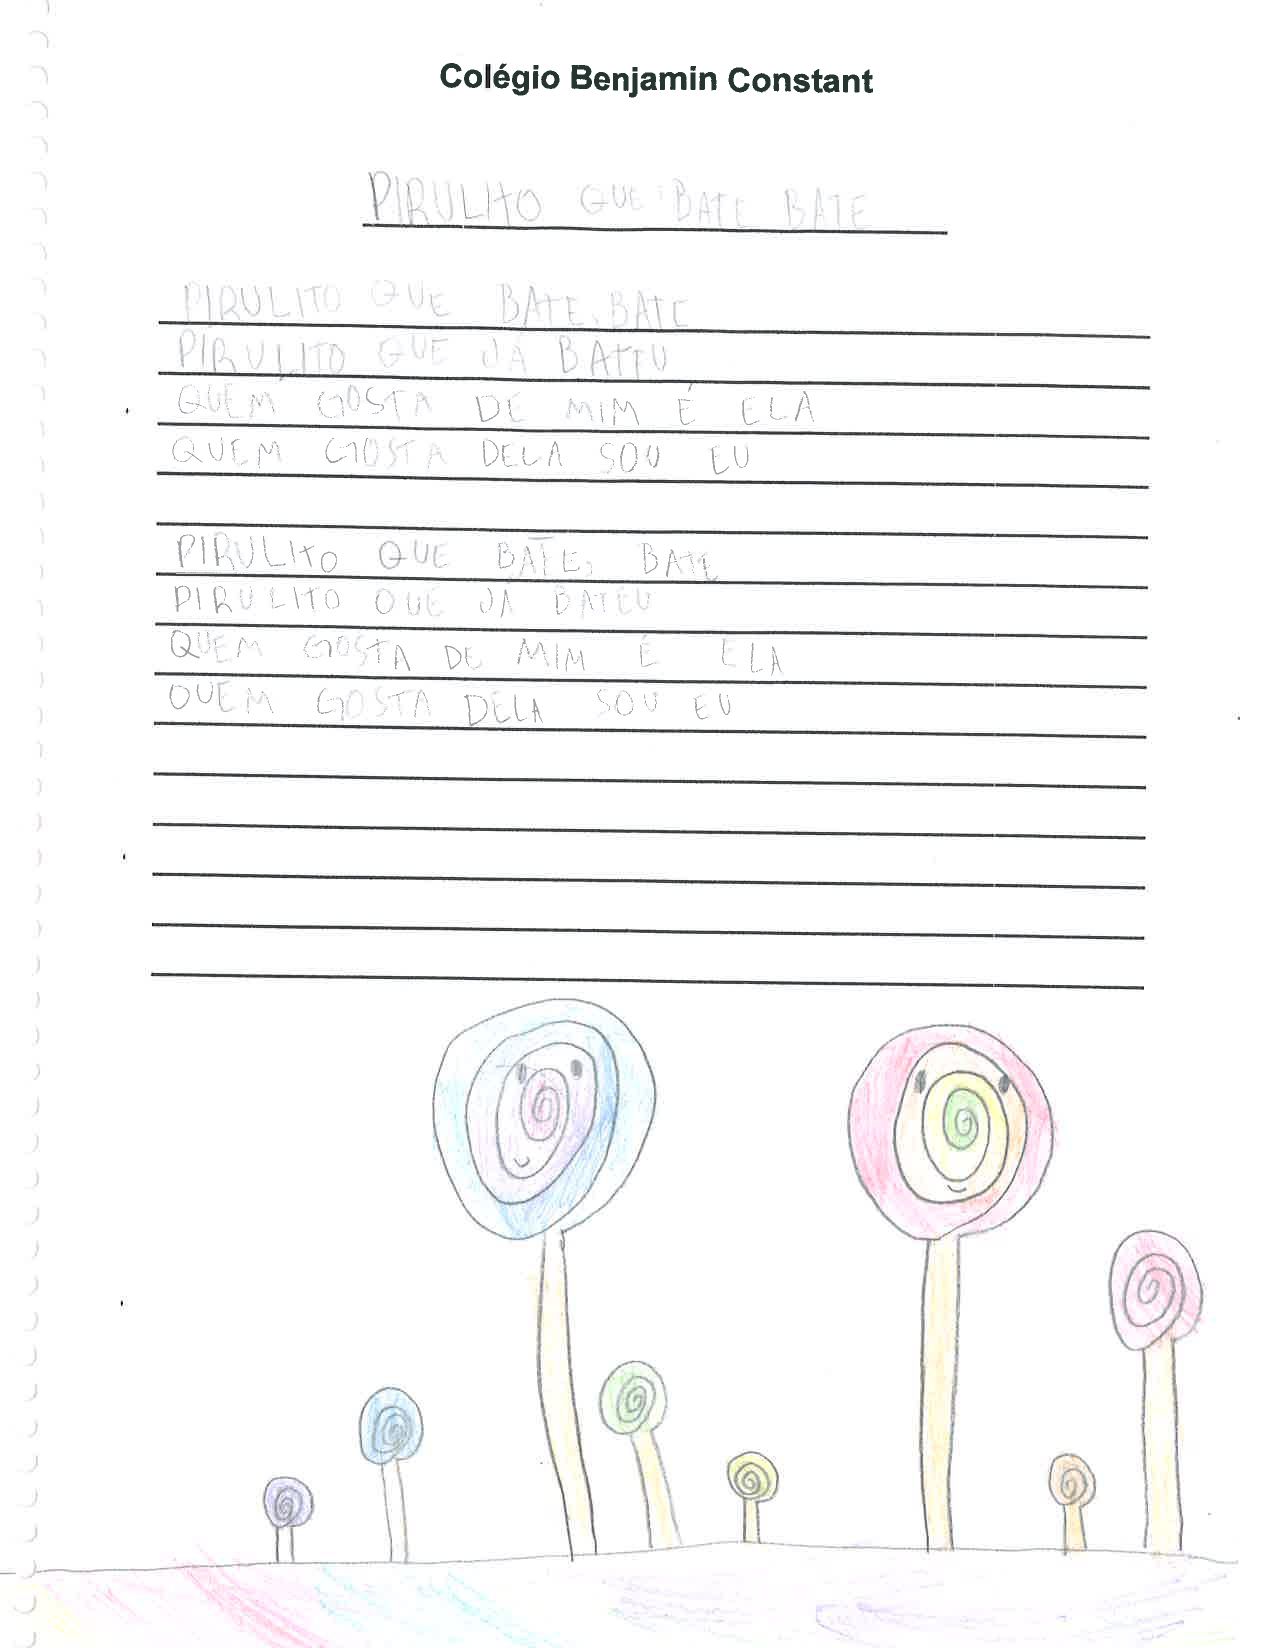 Colégio Benjamin Constant
PIRULITO QUE BATE BATE
PIRULITO QUE BATE, BATE
PIRULITO QUE JÁ BATEU
QUEM GOSTA DE MIM É ELA
QUEM GOSTA DELA SOU EU
PIRULITO QUE BATE, BATE
PIRULITO QUE JÁ BATEU
QUEM GOSTA DE MIM É ELA
QUEM GOSTA DELA SOU EU